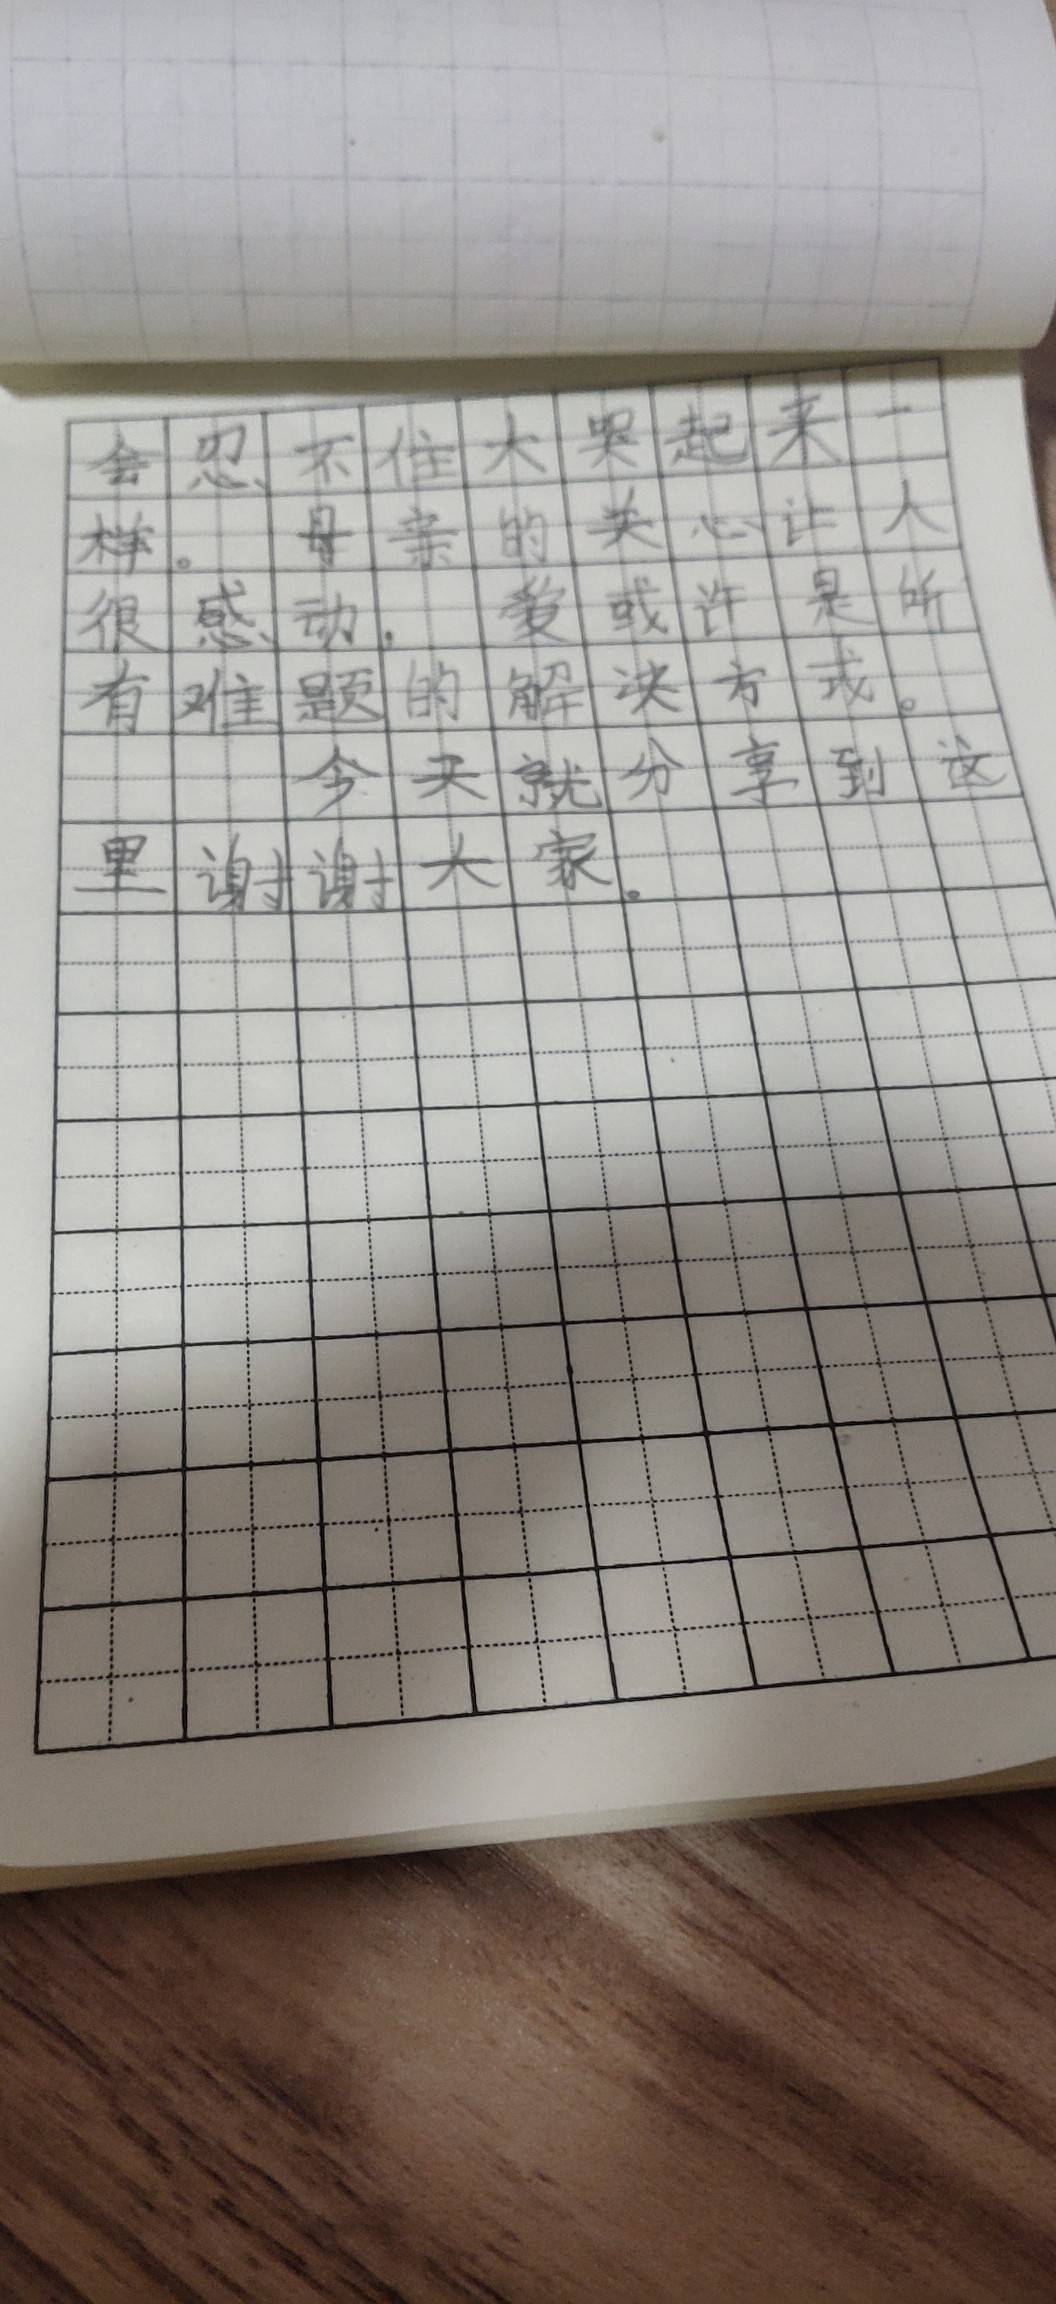 会忍不住大哭起来一
样。母亲的关心让人
很感动，爱或许是所
有难题的解决方式。
今天就分享到这
里谢谢大家。